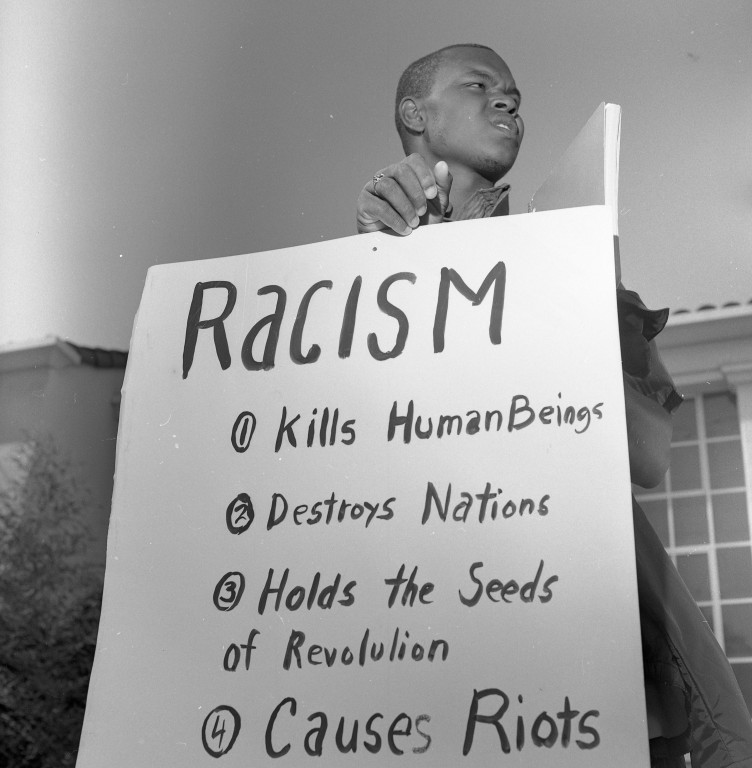 RacisM
① Kills HumanBeings
② Destroys Nations
③ Holds the Seeds
of Revolulion
④ Causes Riots